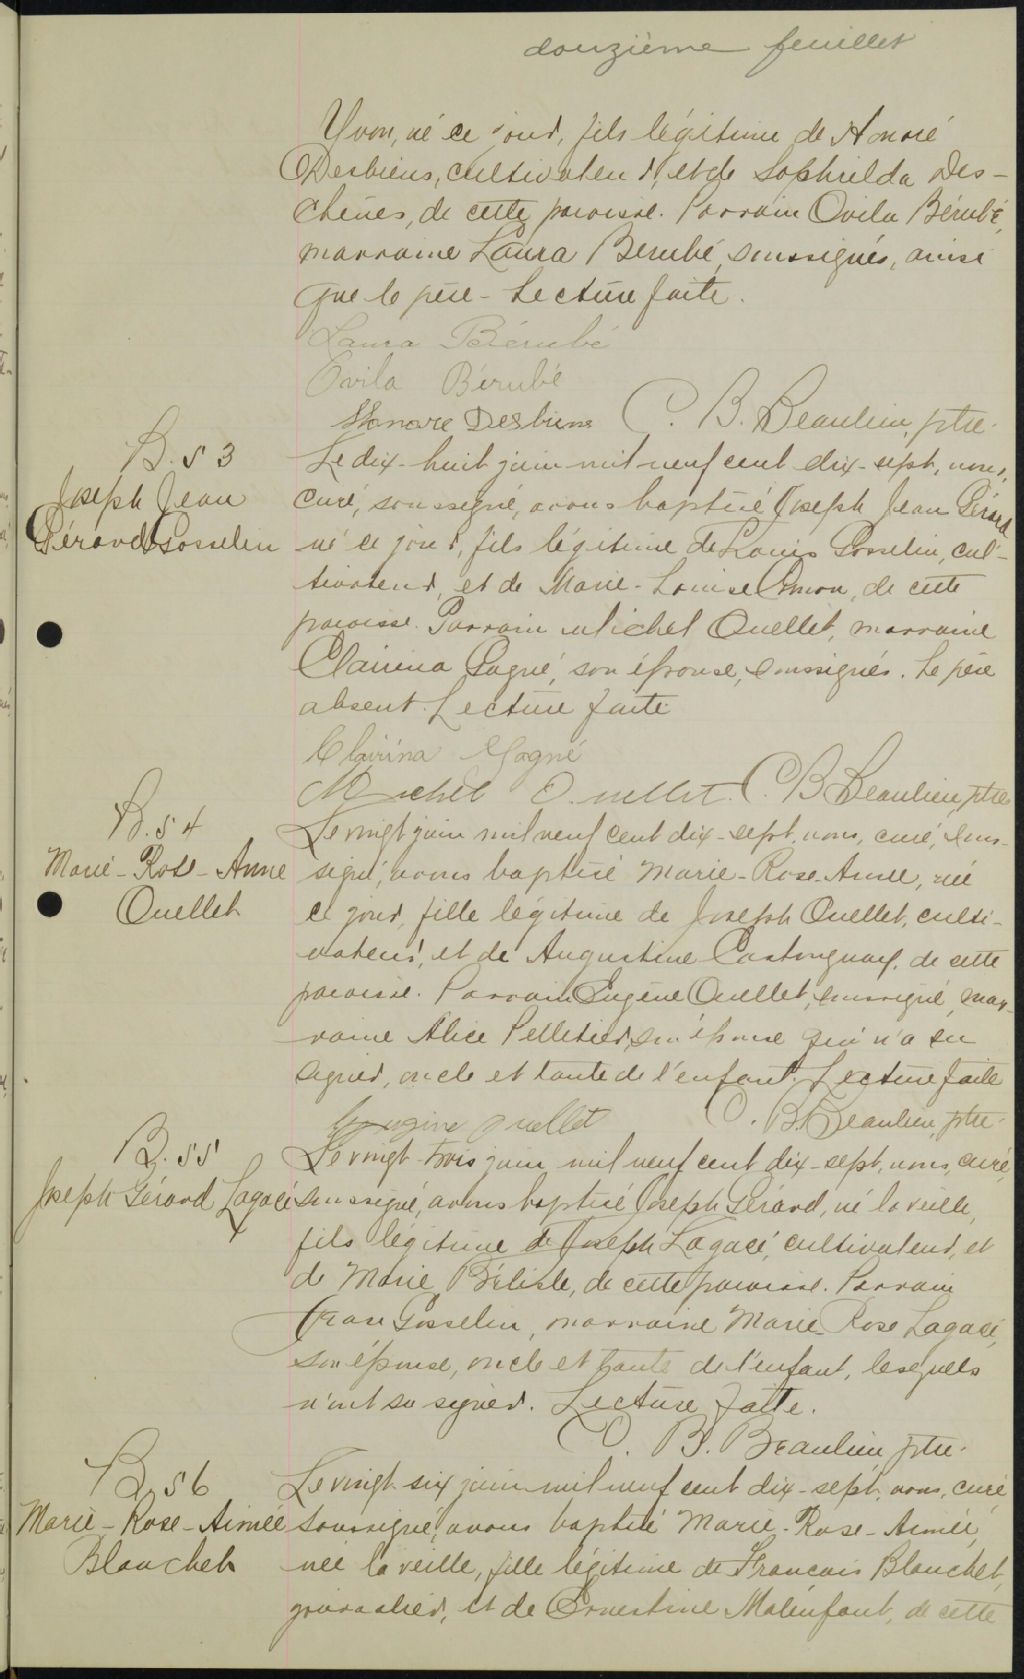 douzième feuillet
Yvon, né ce jour, fils légitime de Honoré
Desbiens, cultivateur, et de Sophrilda Des-
chênes, de cette paroisse. Parrain Ovila Bérubé,
marraine Laura Bérubé, soussignés, ainsi
que le père - Lecture faite.
Laura Bérubé
Ovila Bérubé
Honore Desbiens C. B. Beaulieu, ptre.
B. 53
Joseph Jean
Gérard Gosselin
Le dix-huit juin mil neuf cent dix-sept, nous,
curé, soussigné, avons baptisé Joseph Jean Gérard
né ce jour, fils légitime de Louis Gosselin, cul-
tivateur, et de Marie-Louise Emon, de cette
paroisse. Parrain Michel Ouellet, marraine
Clairina Gagné, son épouse, soussignés. Le père
absent. Lecture faite
Clairina Gagné
Michel Ouellet. C. B. Beaulieu, ptre
B. 54
Marie-Rose-Anne
Ouellet
Le vingt juin mil neuf cent dix-sept, nous, curé, sous-
signé, avons baptisé Marie-Rose-Anne, née
ce jour, fille légitime de Joseph Ouellet, culti-
vateur, et de Augustine Castonguay, de cette
paroisse. Parrain Eugène Ouellet, soussigné, mar-
raine Alice Pelletier, son épouse qui n'a su
signer, oncle et tante de l'enfant. Lecture faite
Eugène Ouellet C. B. Beaulieu, ptre.
B. 55
Joseph Gérard Lagacé
Le vingt-trois juin mil neuf cent dix-sept, nous, curé,
soussigné, avons baptisé Joseph Gérard, né la veille,
fils légitime de Joseph Lagacé, cultivateur, et
de Marie Bélisle, de cette paroisse. Parrain
Gosselin, marraine Marie-Rose Lagacé,
son épouse, oncle et tante de l'enfant, lesquels
n'ont su signer. Lecture faite.
C. B. Beaulieu ptre.
B. 56
Marie-Rose-Aimée
Blanchet
Le vingt-six juin mil neuf cent dix-sept, nous, curé,
soussigné, avons baptisé Marie-Rose-Aimée,
née la veille, fille légitime de François Blanchet,
journalier, et de Ernestine Malenfant, de cette